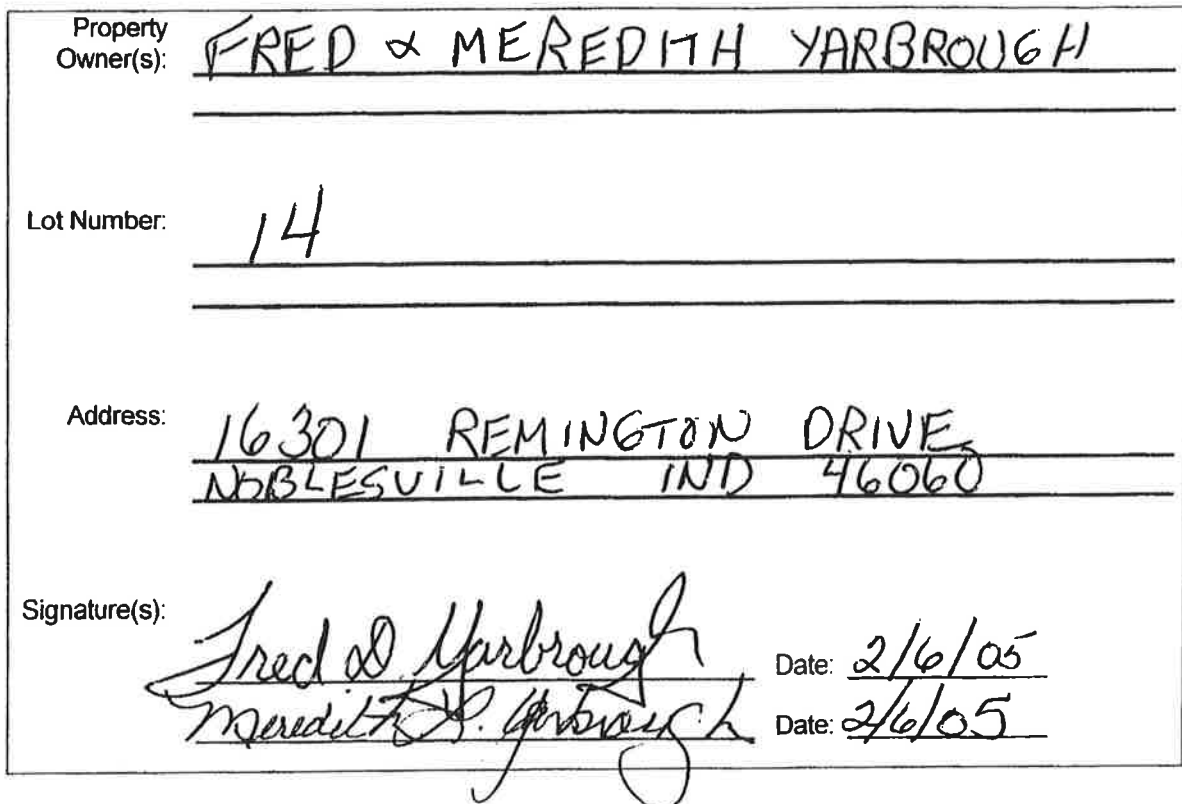 Property
Owner(s): FRED & MEREDITH YARBROUGH
Lot Number: 14
Address: 16301 REMINGTON DRIVE
NOBLESVILLE IND 46060
Signature(s):
Fred D. Yarbrough Date: 2/6/05
Meredith Yarbrough Date: 2/6/05